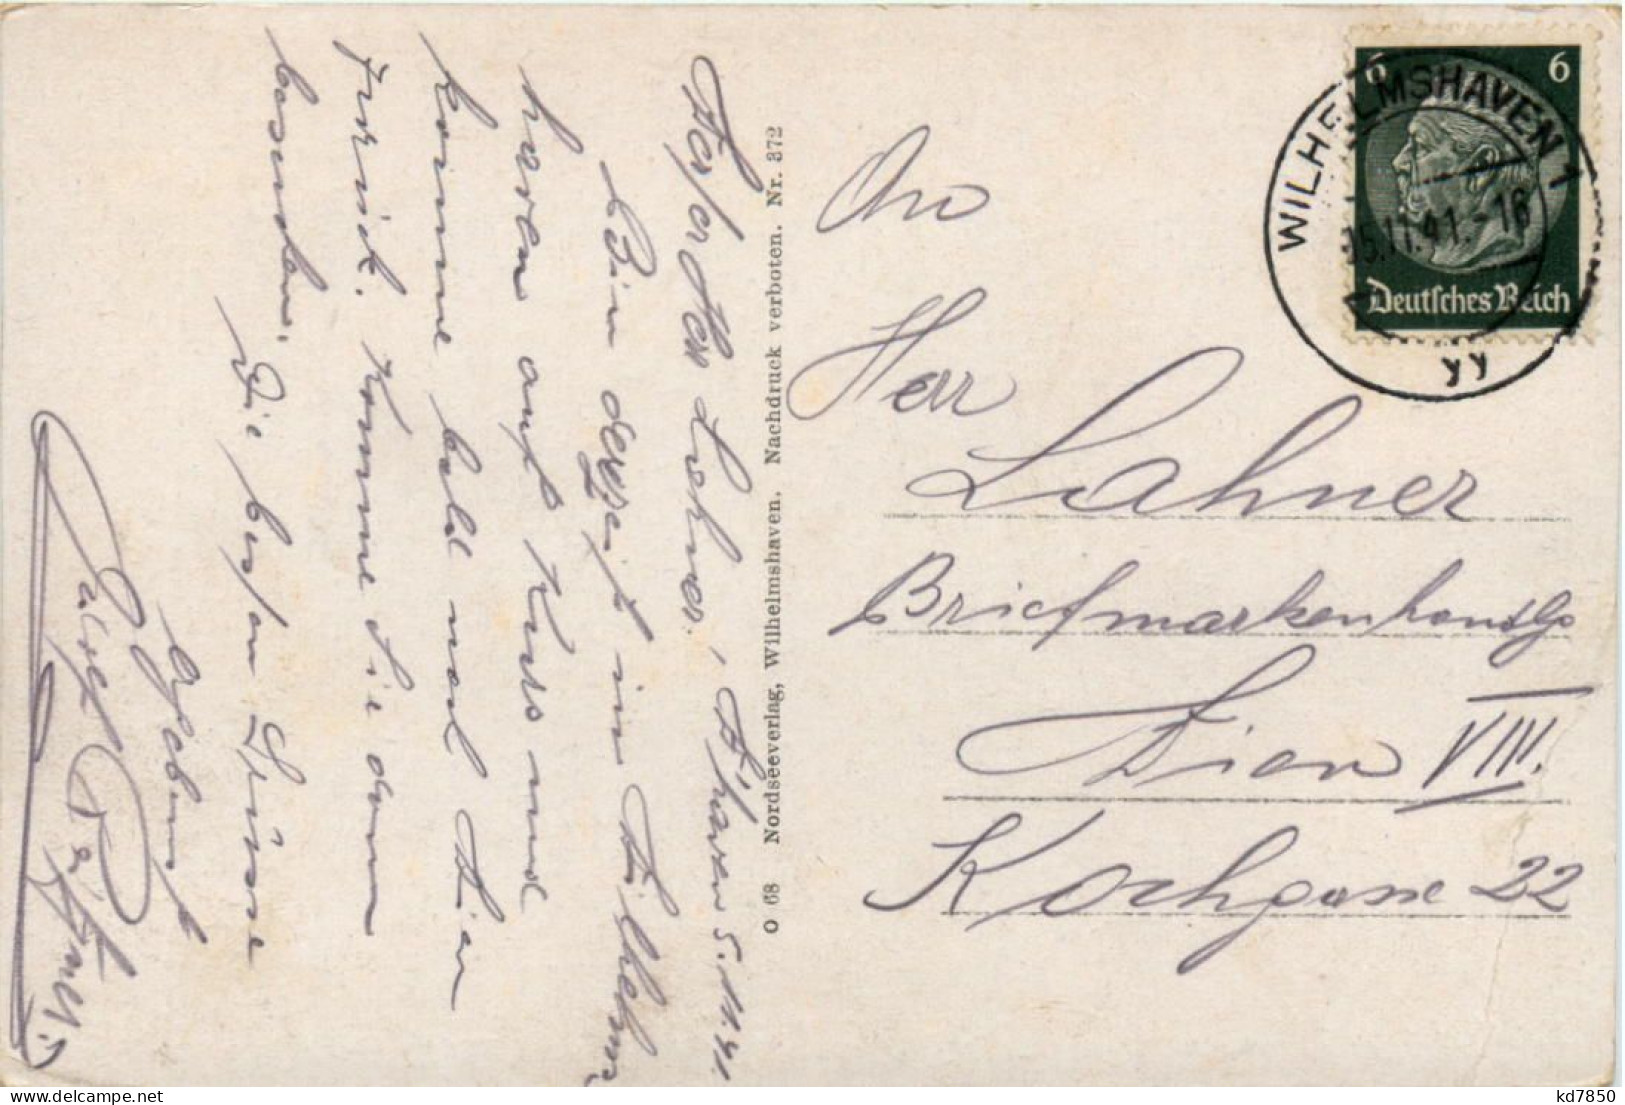 Werter Herr Lahner! W'haven 5.11.41.
Bin derzeit in Wilhelms-
haven auf Kurs und
komme bald nach Wien
zurück. Komme Sie dann
besuchen.
Die besten Grüsse
Ergebenst
O 68 Nordseeverlag, Wilhelmshaven. Nachdruck verboten. Nr. 372
An
Herr
Lahner
Briefmarkenhandlg
Wien VIII.
Kochgasse 22
6 6
Deutsches Reich
WILHELMSHAVEN 1
05.11.41.-16
yy
kd7850